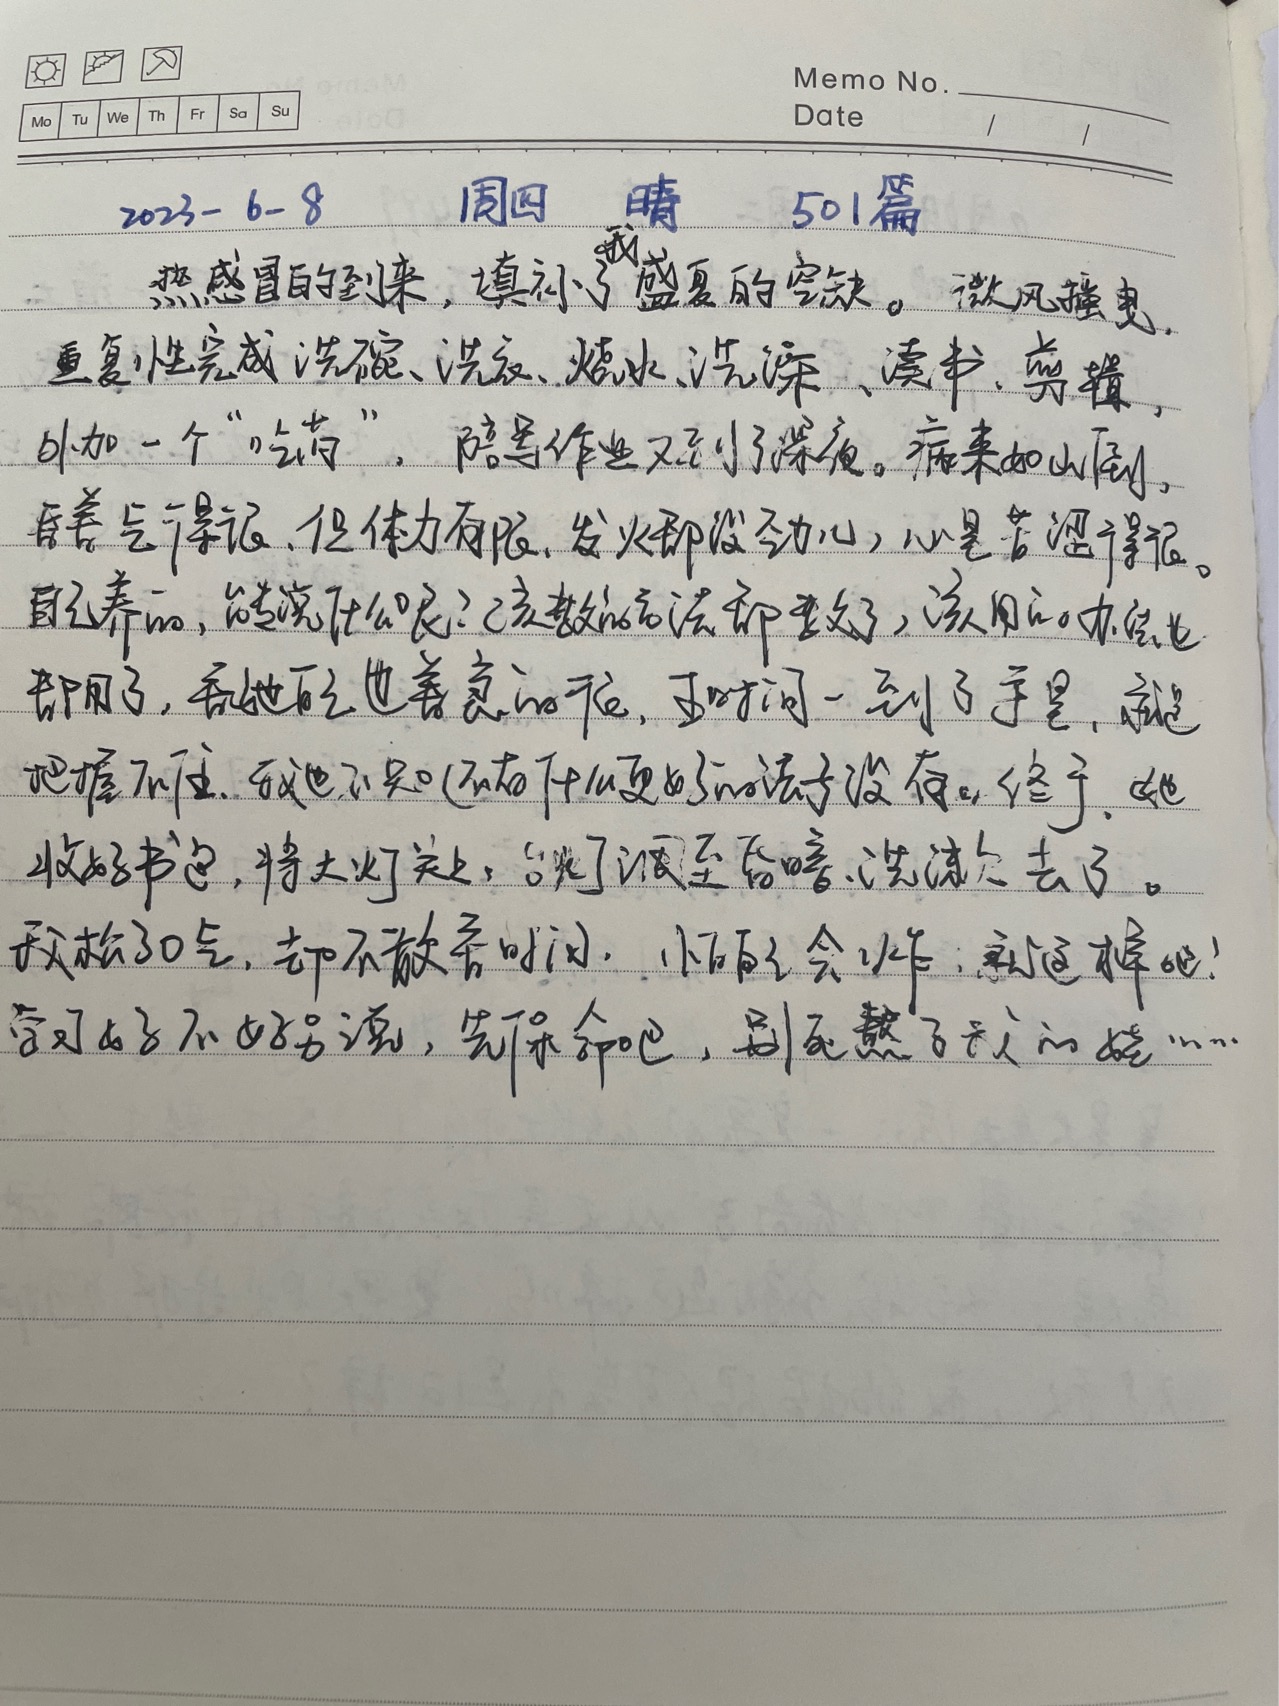 Mo Tu We Th Fr Sa Su
Memo No.
Date / /
2023-6-8 周四 晴 501篇
热感冒的到来，填补了我盛夏的空缺。微风摇曳，
重复性完成洗碗、洗衣、烧水、洗澡、读书、剪辑，
外加一个“吃药”，陪写作业又到了深夜。病来如山倒，
看着气得很、但体力有限、发火都没劲儿，心里苦涩得很。
自己养的，能说什么呢？该教的方法都教了，该用的办法也
都用了，看她自己也着急的不行，可时间一到了手里，就是
把握不住。我也不知还有什么更好的法子没有。终于，她
收好书包，将大灯关上，台灯调至昏暗、洗漱去了。
我松了口气，却不敢看时间。怕自己会炸，就这样吧！
学习好不好另说，先保命吧，别死熬了我的娃……